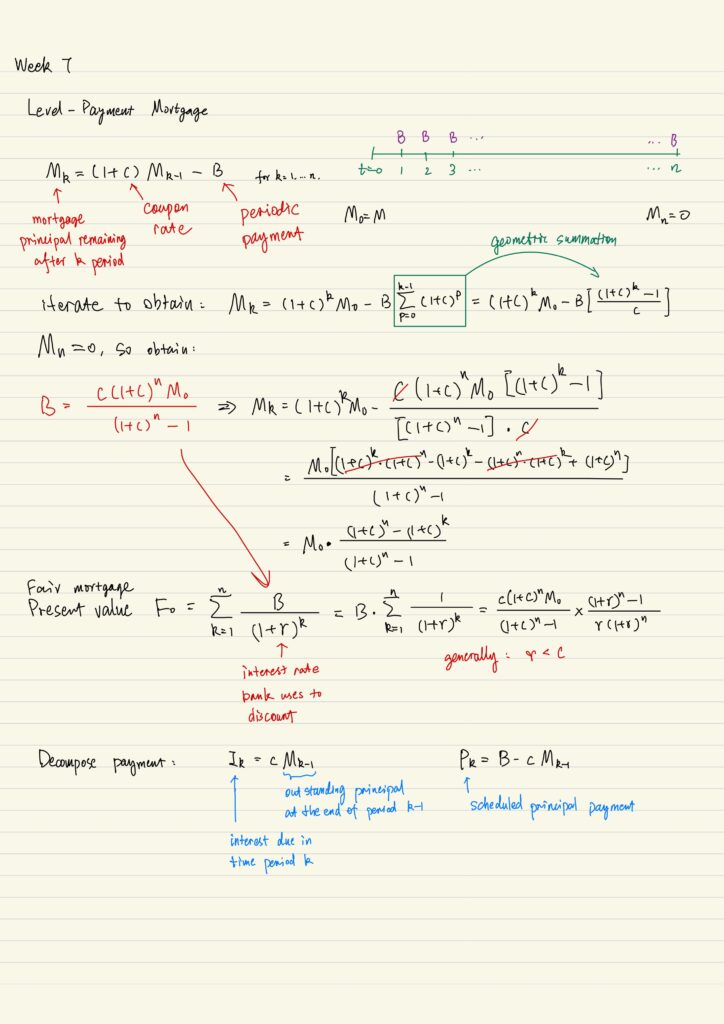 Week 7
Level-Payment Mortgage
B B B ... ... B
t=0 1 2 3 ... ... n
M_k = (1+c) M_{k-1} - B for k=1, ... n.
mortgage principal remaining after k period
coupon rate
periodic payment
M_0 = M M_n = 0
geometric summation
iterate to obtain: M_k = (1+c)^k M_0 - B \sum_{p=0}^{k-1} (1+c)^p = (1+c)^k M_0 - B [ \frac{(1+c)^k - 1}{c} ]
M_n = 0, so obtain:
B = \frac{c(1+c)^n M_0}{(1+c)^n - 1} ⇒ M_k = (1+c)^k M_0 - \frac{c (1+c)^n M_0 [(1+c)^k - 1]}{[(1+c)^n - 1] · c}
= \frac{M_0 [(1+c)^k · (1+c)^n - (1+c)^k - (1+c)^n · (1+c)^k + (1+c)^n]}{(1+c)^n - 1}
= M_0 · \frac{(1+c)^n - (1+c)^k}{(1+c)^n - 1}
Fair mortgage
Present value F_0 = \sum_{k=1}^{n} \frac{B}{(1+r)^k} = B · \sum_{k=1}^{n} \frac{1}{(1+r)^k} = \frac{c(1+c)^n M_0}{(1+c)^n - 1} × \frac{(1+r)^n - 1}{r(1+r)^n}
interest rate
bank uses to
discount
generally: r < c
Decompose payment: I_k = c M_{k-1} P_k = B - c M_{k-1}
outstanding principal
at the end of period k-1
scheduled principal payment
interest due in
time period k